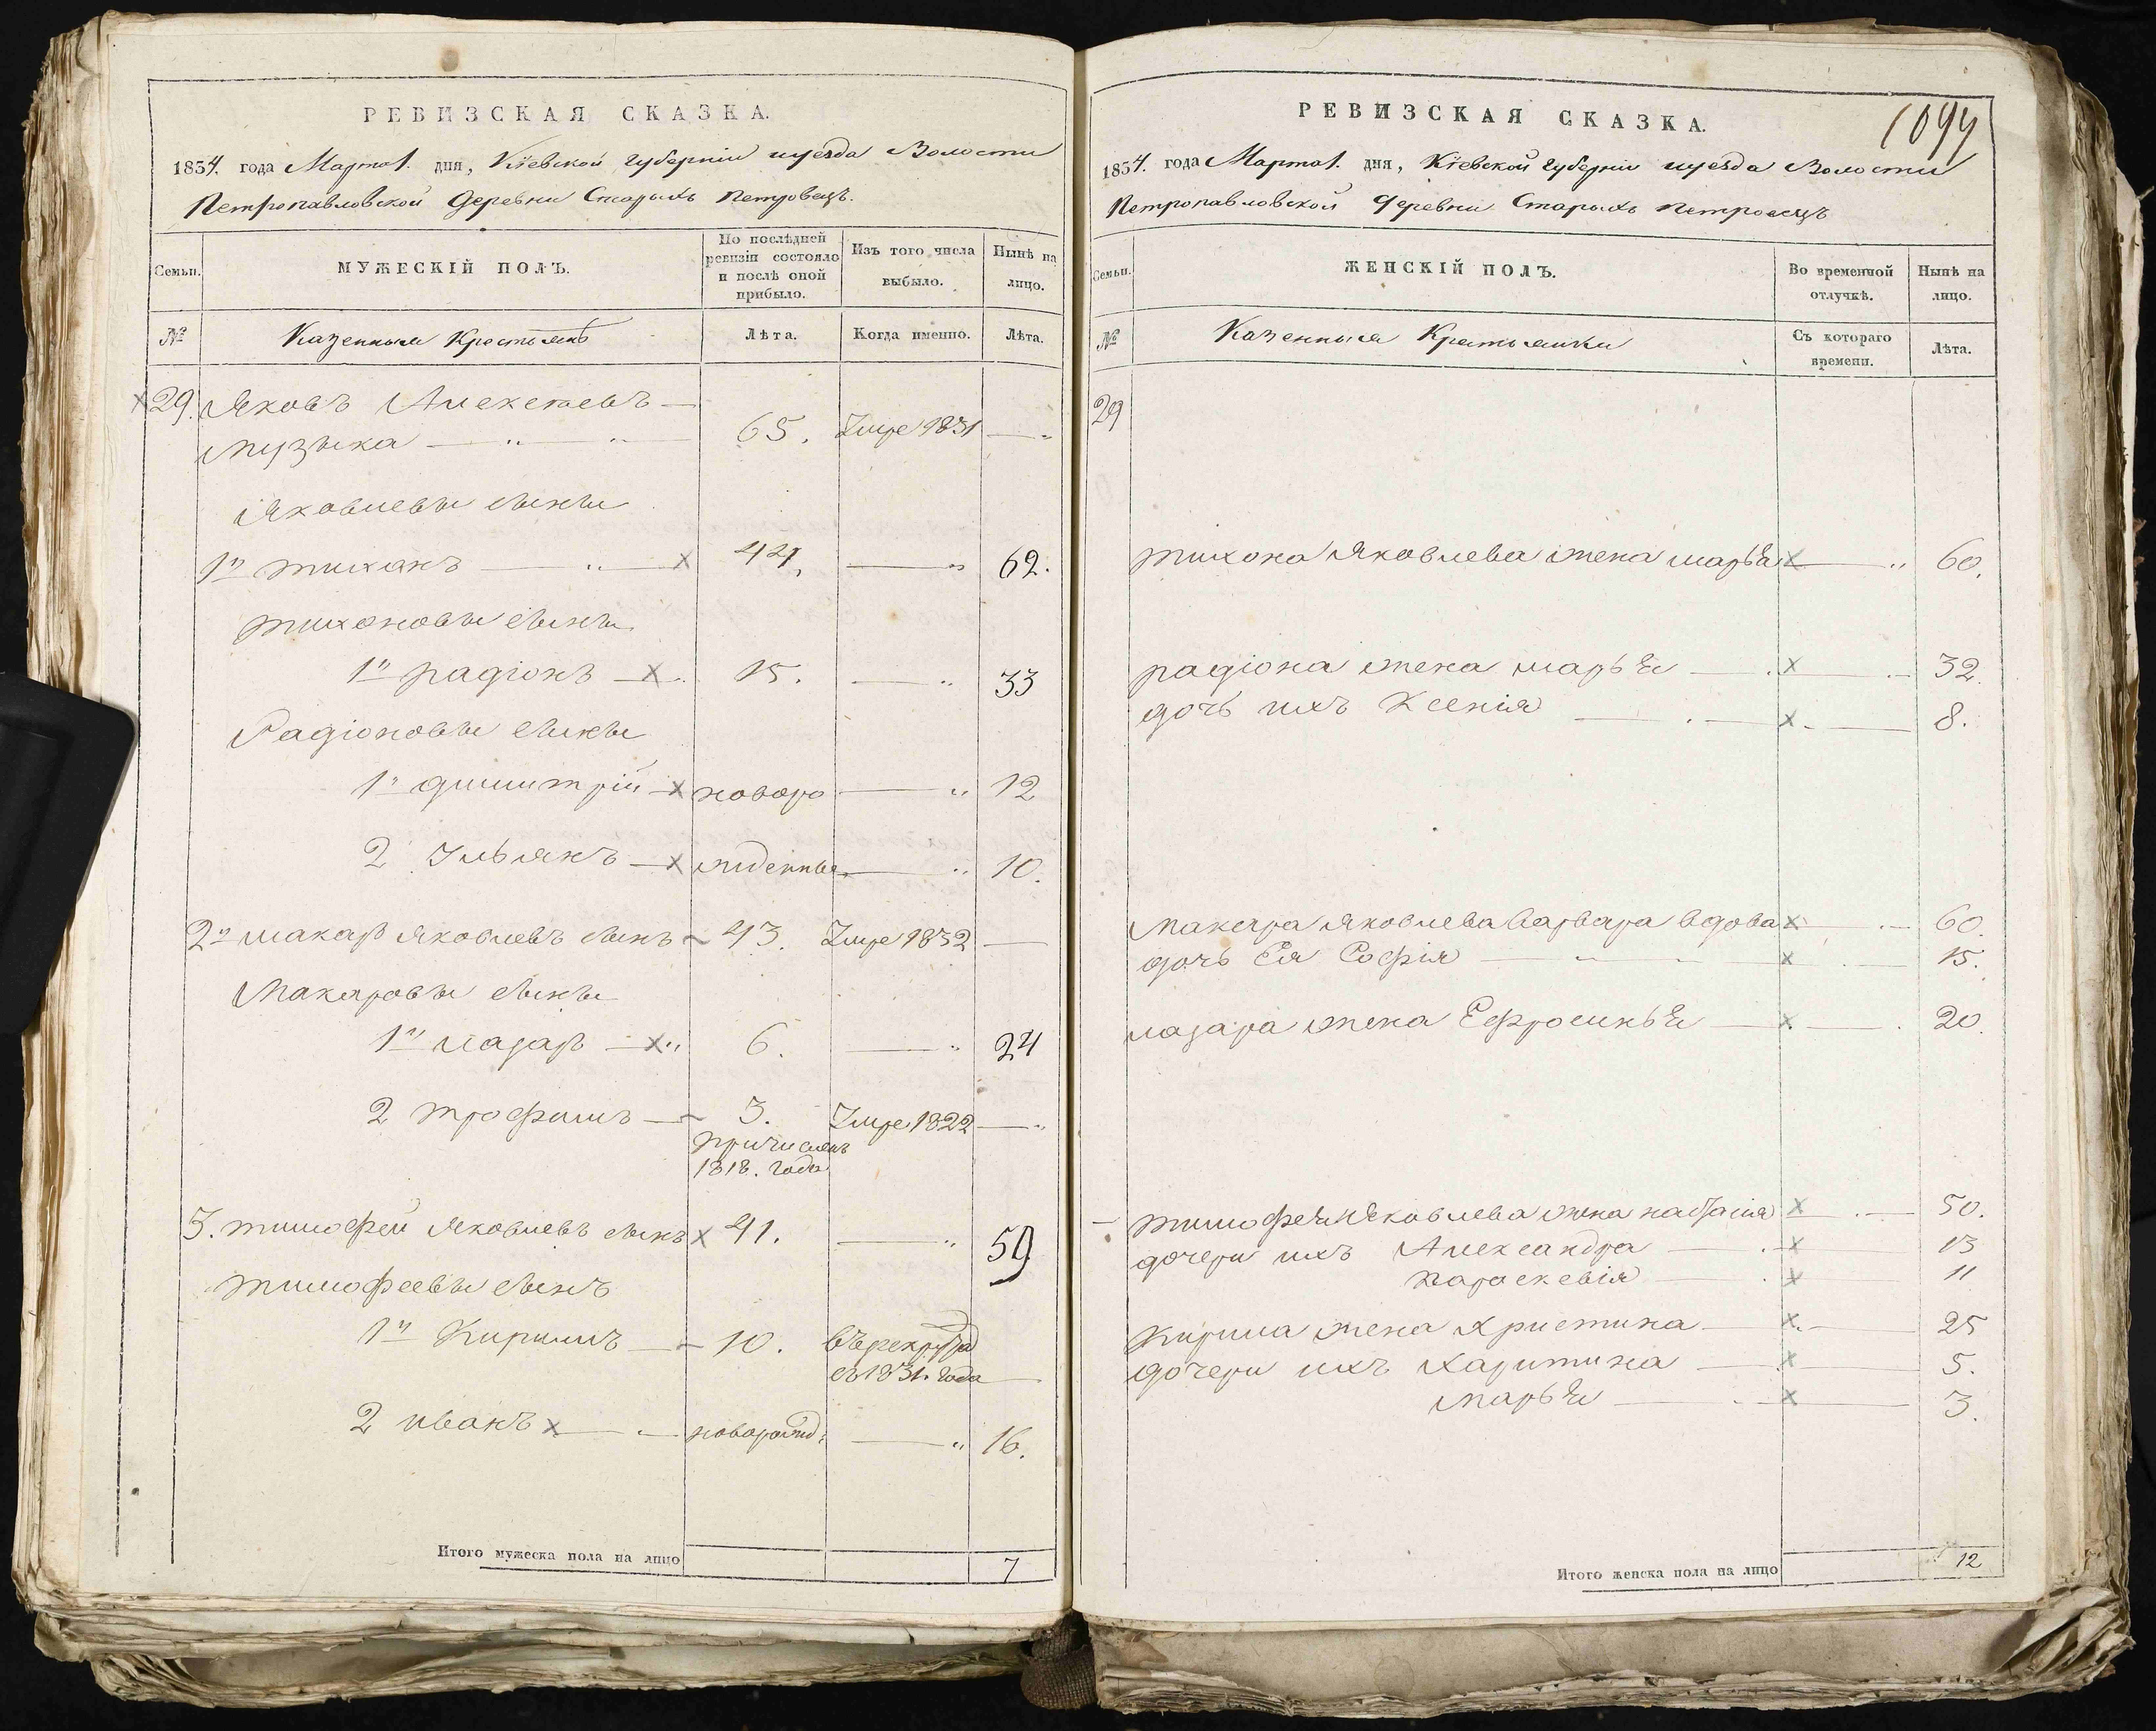 РЕВИЗСКАЯ СКАЗКА.
1834. года Марта 1. дня, Кіевской губерніи и уезда Волости
Петропавловской деревни Старыхъ Петровецъ.
Семьи.
МУЖЕСКІЙ ПОЛЪ.
По послѣдней ревизіи состояло и послѣ оной прибыло.
Изъ того числа выбыло.
Нынѣ на лицо.
№
Казенныя Крестьянѣ
Лѣта.
Когда именно.
Лѣта.
29. Яковъ Алексеевъ
музыка 65. Умре 1831
Яковлевы сыны
1й тихонъ 44. 62.
тихоновы сыны
1й радіонъ 15. 33
Радіоновы сыны
1й димитрій новоро 12
2 Ульянъ жденныя 10.
2й макаръ Яковлевъ сынъ 43. Умре 1832
Макаровы сыны
1й лазаръ 6. 24
2 трофимъ 3. Умре 1822
причисленъ
1818. года
3. тимофей Яковлевъ сынъ 41. 59
тимофеевы сынъ
1й Кирилъ 10. въ рекрутъ
съ 1831. года
2 иванъ новорожд: 16.
Итого мужеска пола на лицо 7
1094
РЕВИЗСКАЯ СКАЗКА.
1834. года Марта 1. дня, Кіевской губерніи и уезда Волости
Петропавловской деревни Старыхъ Петровецъ
Семьи.
ЖЕНСКІЙ ПОЛЪ.
Во временной отлучкѣ.
Нынѣ на лицо.
№
Казенныя Крестьянки
Съ котораго времени.
Лѣта.
29
тихона Яковлева жена марья 60.
радіона жена марья 32.
дочь ихъ Ксенія 8.
Макара Яковлева варвара вдова 60.
дочь Ея Софія 15.
лазара жена Ефросинья 20.
тимофея Яковлева жена настасія 50.
дочери ихъ Александра 13
параскевія 11
Кирила жена Христина 25
дочери ихъ Харитина 5.
марья 3.
Итого женска пола на лицо 12